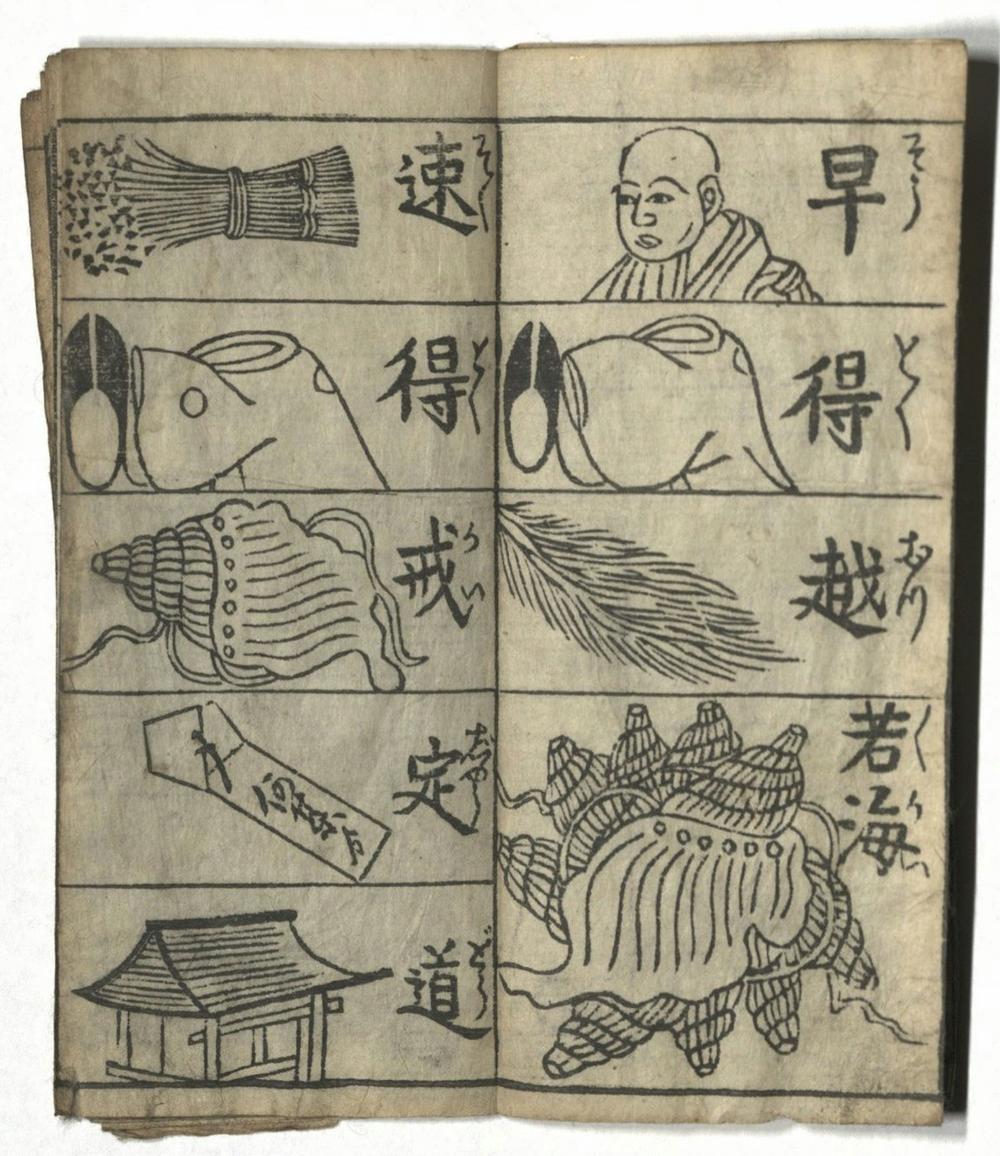 早 そう
得 とく
越 おつ
苦海 くかい
速 そく
得 とく
戒 かい
定 ぢやう
道 どう